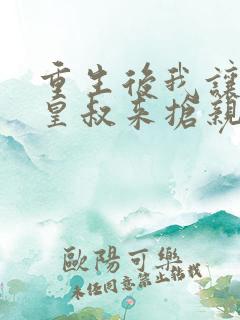 重生後我讓
皇叔來搶親
歐陽可樂
未經同意禁止轉載